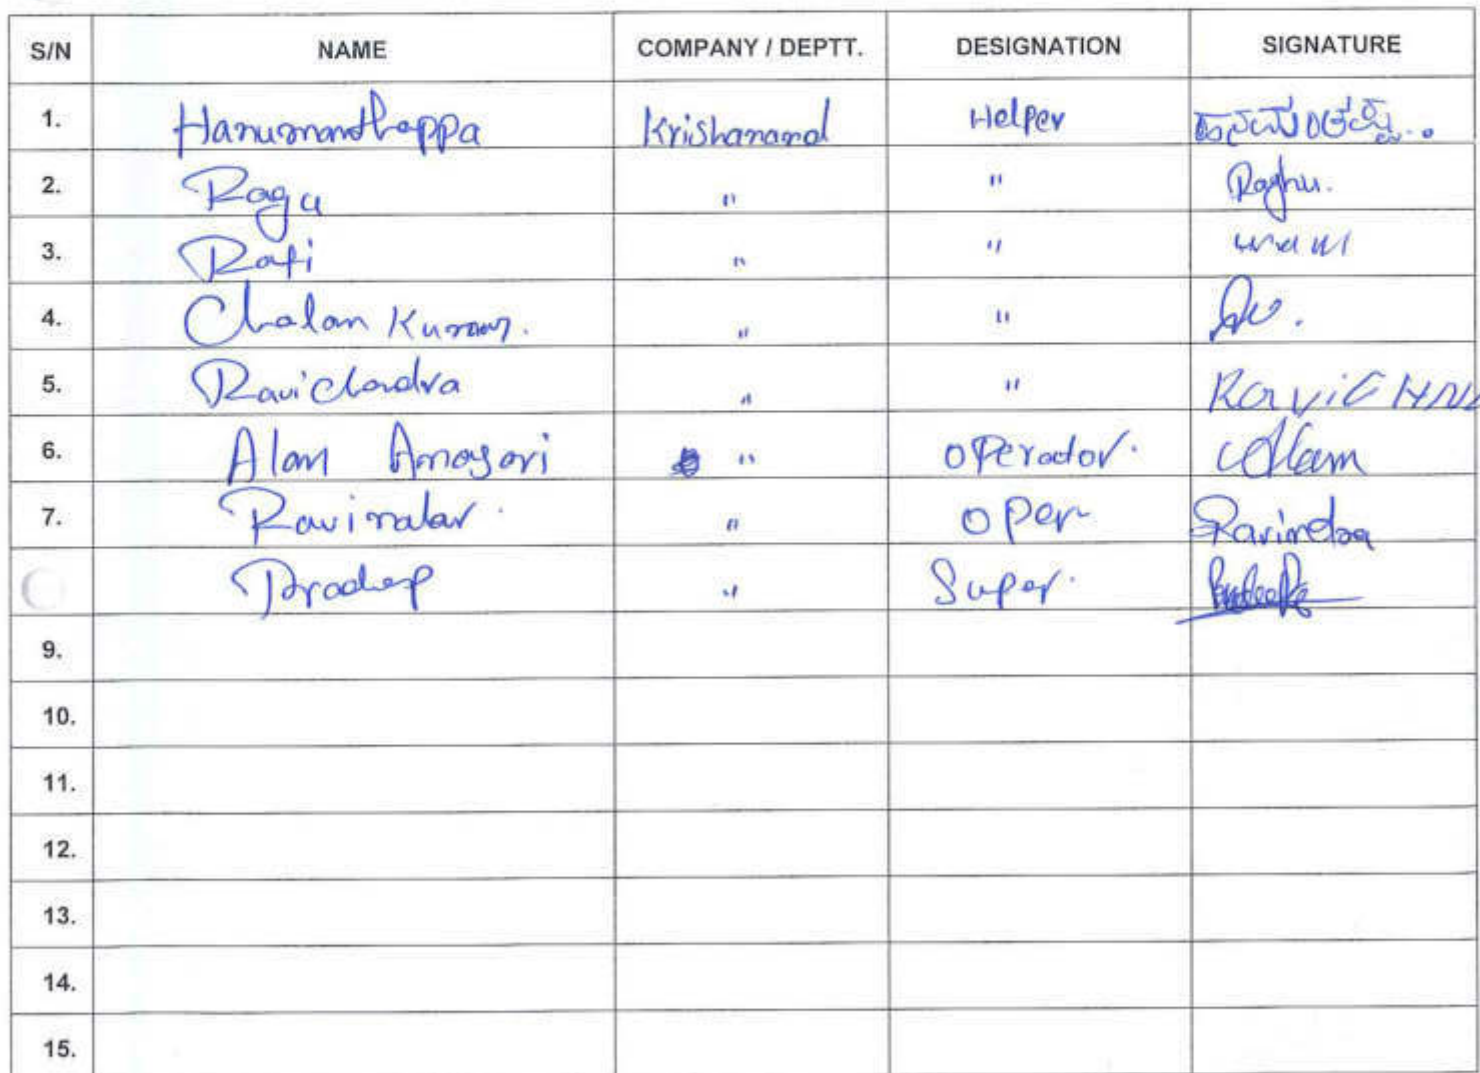 S/N NAME COMPANY / DEPTT. DESIGNATION SIGNATURE
1. Hanumanthappa Krishanand Helper ಹನಮಂತಪ್ಪ..
2. Ragu " " Raghu.
3. Rafi " "
4. Chalan Kumar. " "
5. Ravichandra " " RaviCHN
6. Alam " Operator. Alam
7. " Oper Ravindra
Pradeep " Super. Pradeep
9.
10.
11.
12.
13.
14.
15.